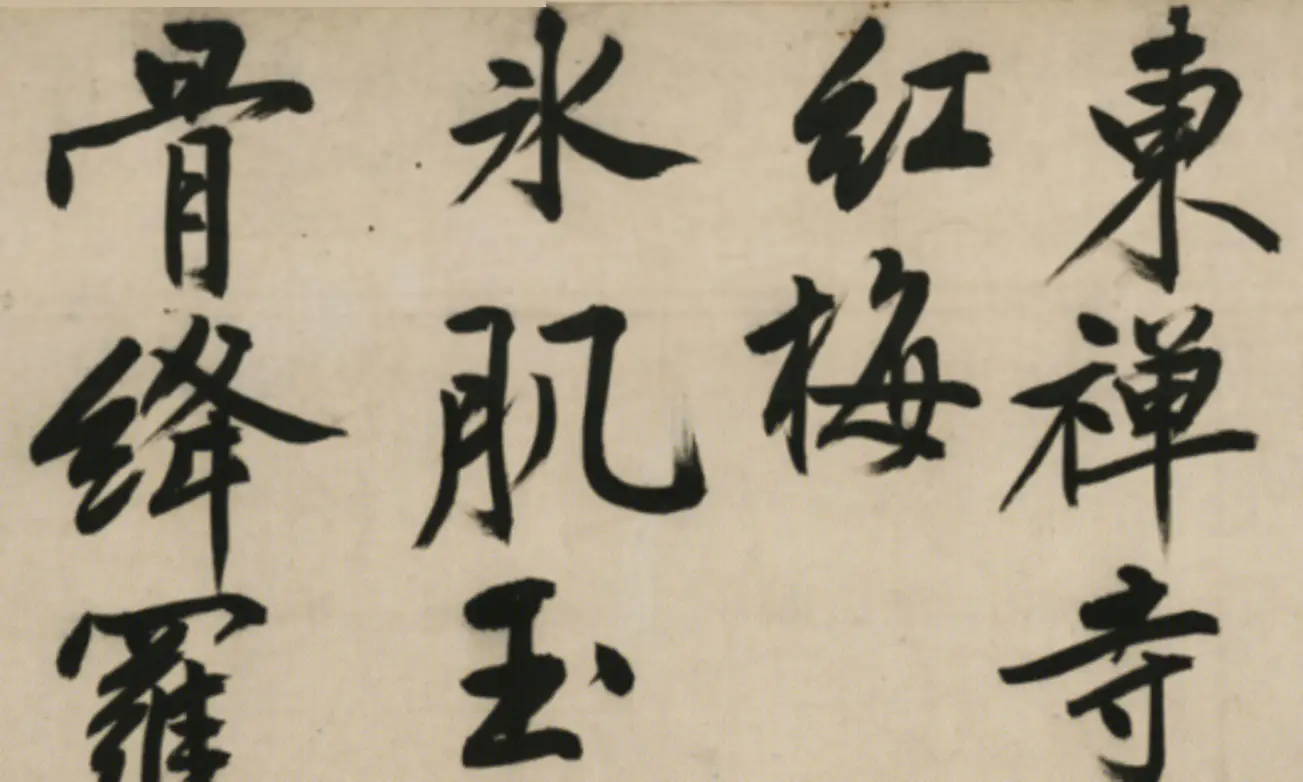 東禅寺
紅梅
氷肌玉
骨絳羅